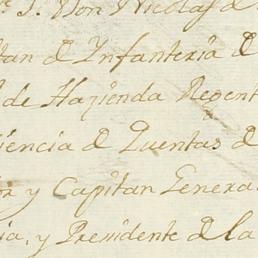 S.r D.n Don Nicolas d
tan d Infanteria d
l de Hazienda Regent
iencia d Quentas d
or y Capitan General
ia, y Presidente d la